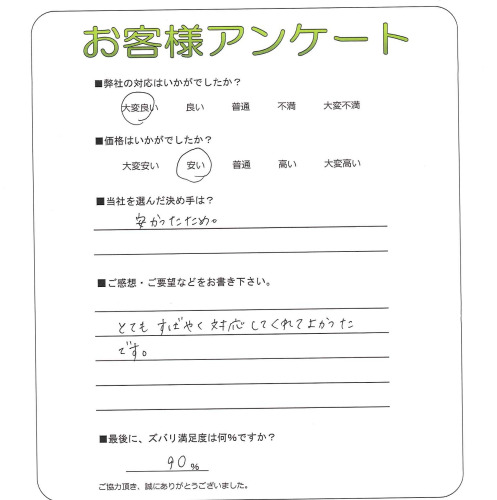 お客様アンケート
■弊社の対応はいかがでしたか？
大変良い 良い 普通 不満 大変不満
■価格はいかがでしたか？
大変安い 安い 普通 高い 大変高い
■当社を選んだ決め手は？
安かったため。
■ご感想・ご要望などをお書き下さい。
とても すばやく 対応してくれてよかった
です。
■最後に、ズバリ満足度は何%ですか？
90 %
ご協力頂き、誠にありがとうございました。